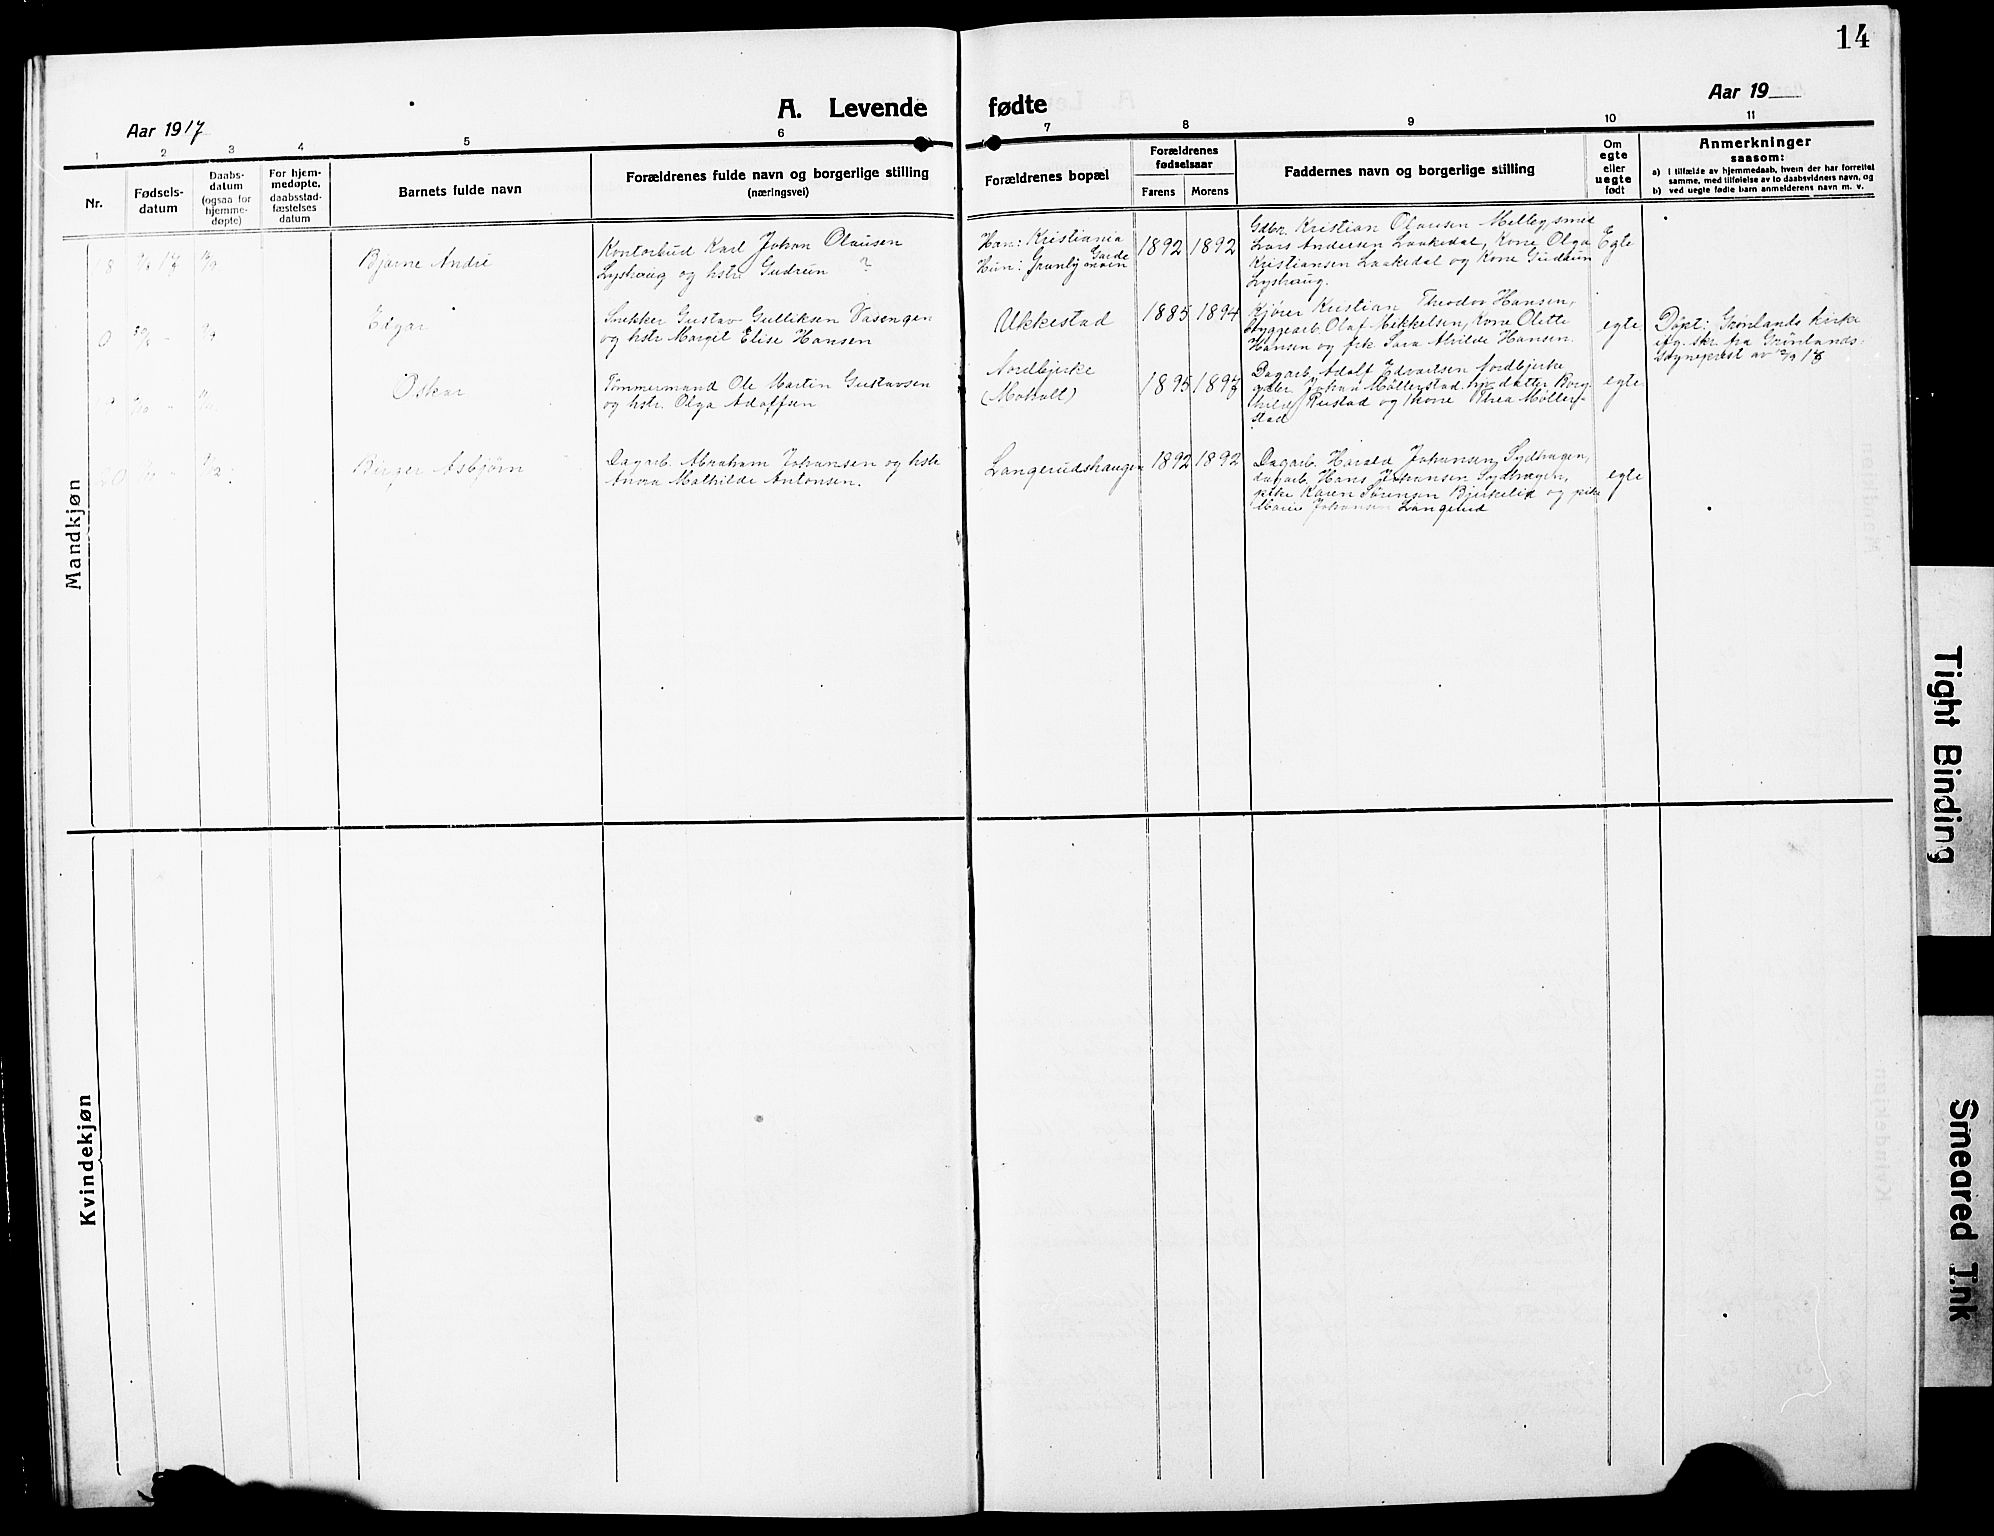 14
Aar 1917
A. Levende
fødte
Aar 19
1 2 3 4 5 6 7 8 9 10 11
Nr.
Fødsels-
datum
Daabs-
datum
(ogsaa for
hjemme-
døpte)
For hjem-
medøpte,
daabsstad-
fæstelses
datum
Barnets fulde navn
Forældrenes fulde navn og borgerlige stilling
(næringsvei)
Forældrenes bopæl
Forældrenes
fødselsaar
Farens Morens
Faddernes navn og borgerlige stilling
Om
egte
eller
uegte
født
Anmerkninger
saasom:
a) i tilfælde av hjemmedaab, hvem der har forrettet
samme, med tilføielse av to daabsvidners navn, og
b) ved uegte fødte barn anmelderens navn m. v.
Mandkjøn
8
Bjarne André
Kontorbud Karl Johan Olausen
Lyshaug og hstr. Gudrun ?
Han: Kristiania
Hun: Granly
1892 1892
Gdbr. Kristian Olausen Melleg, smed
Lars Andersen Laakedal, Kone Olga
Kristiansen Laakedal og Kone Gudrun
Lyshaug.
Egte
Edgar
Snekker Gustav Gulliksen Vasengen
og hstr. Margit Elise Hansen
Ukkestad
1885 1894
Kjører Kristian Theodor Hansen,
Olaf Mikkelsen, Kone Olette
Hansen og frk. Sara Alvilde Hansen.
egte.
Døpt: Grønlands kirke
iflg. skr. fra Grønlands
Sogneprest av
Oskar
Tømmermand Ole Martin Gustavsen
og hstr. Olga Adolfsen
Nordbjerke
1895 1897
Dagarb. Adolf Edvartsen Nordbjerke
Johan Møllerstad, datter Borg-
hild Rustad og Kone Thea Møller-
stad
egte
20
Birger Asbjørn
Dagarb. Abraham Johansen og hstr.
Anna Mathilde Antonsen.
Langerudshaugen
1892 1892
Dagarb. Harald Johansen Sydhagen,
dagarb. Hans Johansen Sydhagen,
pike Karen Sørensen Bjerkelid og pike
Maren Johansen Langerud
egte
Kvindekjøn
Tight Binding
Smeared Ink